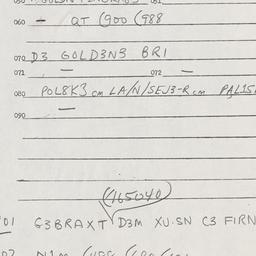 060 – QT (900 (988
070 D3 GOLD3N3 BRI
071 – 072 –
080 POL8K3 cm LA/N/SEJ3-R cm
090 –
(165040)
G3BRAXT D3M XU.SN C3 FIRN